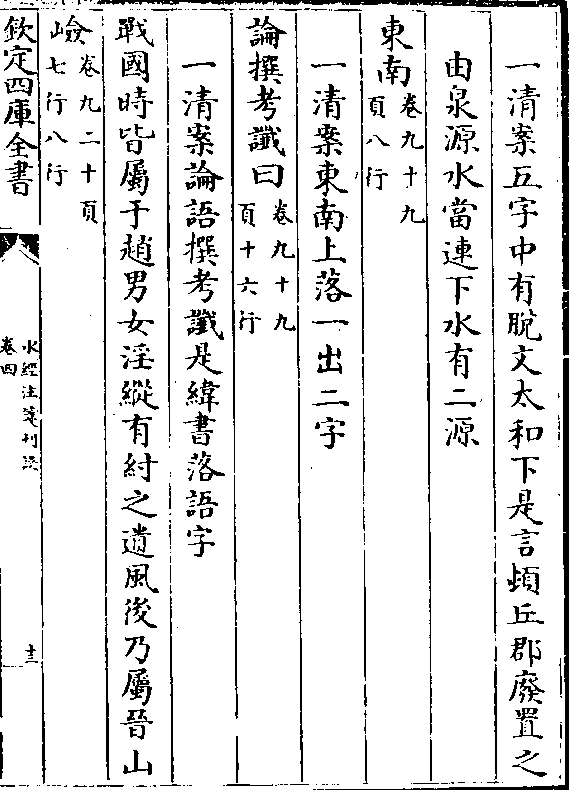 一清案五字中有脫文太和下是言頓丘郡廢置之
由泉源水當連下水有二源
東南卷九十九頁八行
一清案東南上落一出二字
論撰考讖曰卷九十九頁十六行
一清案論語撰考讖是緯書落語字
戰國時皆屬于趙男女淫縱有紂之遺風後乃屬晉山
嶮卷九二十頁七行八行
欽定四庫全書
水經注箋刊誤
卷四
十三